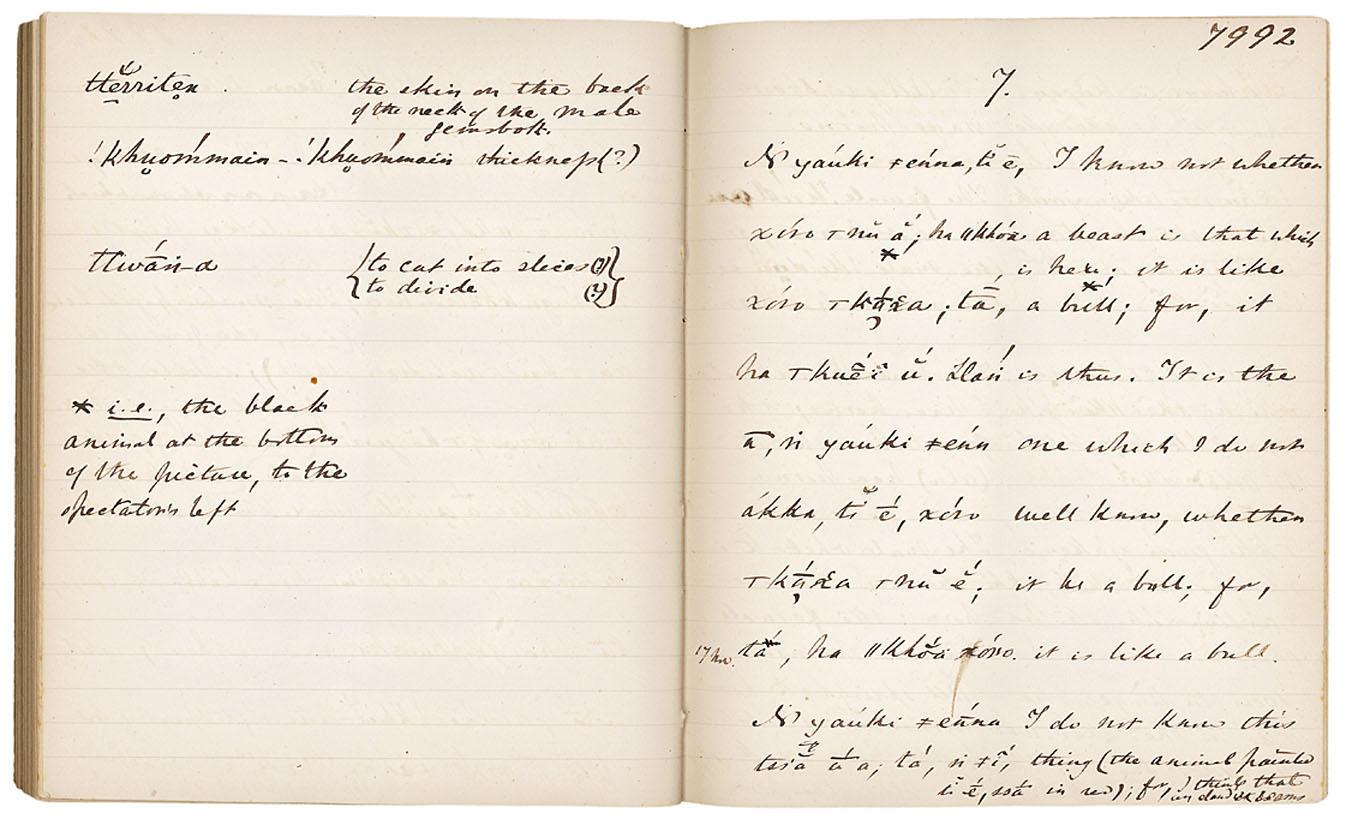 ttĕrriten . the skin on the back
of the neck of the male
gemsbok.
!khuóm̄main – !khuóm̄main thickness (?)
ttwáń-a {to cut into slices (?)}
{to divide (?)}
* i.e., the black
animal at the bottom
of the picture, to the
spectator's left
7992
7.
N yaúki ǂeńna, tĭ ē, I know not whether
xóro ⊤nŭ á; ha ǁkhóa a beast is that which
*, is here; it is like
xóro ⊤ká̄xa; tā, a bull; for, it
ha ⊤kuḗĭ ú. Hań is thus. It is the
ā, ń yaúki ǂeńn one which I do not
ákka, tĭ é, xóro well know, whether
⊤ká̄xa ⊤nŭ ĕ́; it be a bull; for,
tá*, ha ǁkhóa xóro. it is like a bull.
N yaúki ǂeńna I do not know this
á a; tá, ń thing (the animal painted
tĭ é, ssá in red); for, I think that